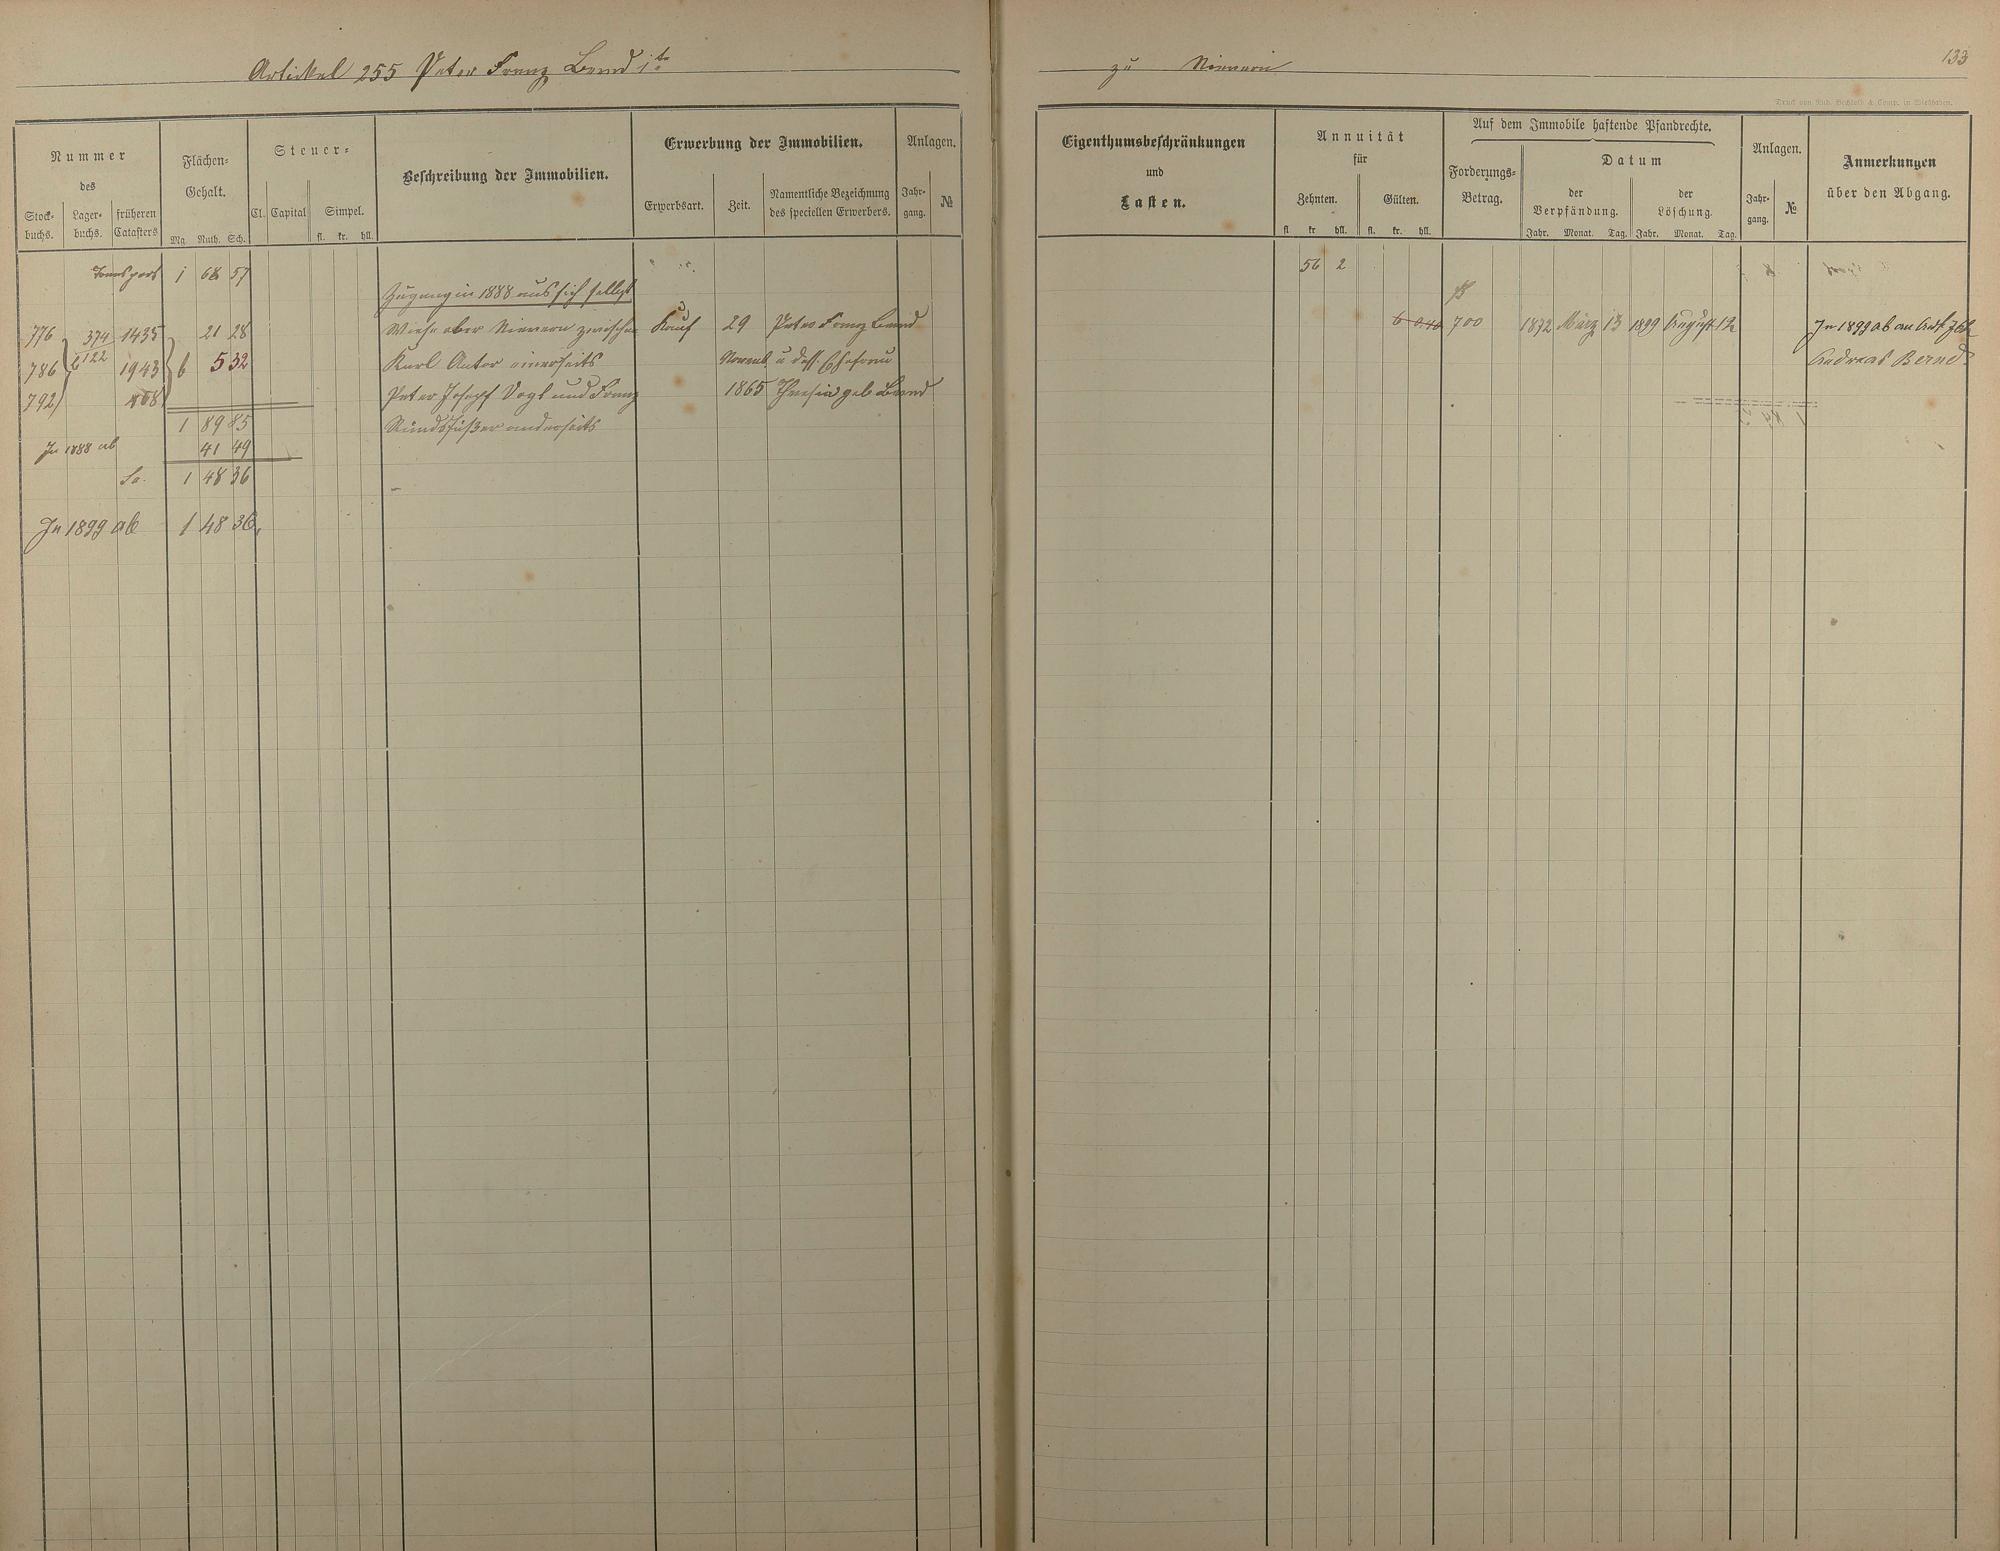 Artikel 255 Peter Franz Bernd 1te
zu Nievern
133
Druck von Rud. Bechtold & Comp. in Wiesbaden.
Nummer
des
Stock-
buchs.
Lager-
buchs.
früheren
Catasters
Flächen-
Gehalt.
Mg. Ruth. Sch.
Steuer-
Cl. Capital
Simpel.
fl. kr. hll.
Beschreibung der Immobilien.
Erwerbung der Immobilien.
Erwerbsart.
Zeit.
Namentliche Bezeichnung
des speciellen Erwerbers.
Anlagen.
Jahr-
gang.
№
Eigenthumsbeschränkungen
und
Lasten.
Annuität
für
Zehnten.
Gülten.
fl. kr. hll. fl. kr. hll.
Auf dem Immobile haftende Pfandrechte.
Forderungs-
Betrag.
Datum
der
Verpfändung.
der
Löschung.
Jahr. Monat. Tag. Jahr. Monat. Tag.
Anlagen.
Jahr-
gang.
№
Anmerkungen
über den Abgang.
Transport 1 68 57
56 2
Zugang in 1888 aus sich selbst
776 374 1435 21 28 Wiese ober Nievern zwischen Kauf 29 Peter Franz Bernd
700 1872 März 13 1899 August 12 In 1899 ab an Art.
786 122 1943 6 5 32 Karl Anton einerseits Novemb. u dess. Ehefrau
Andreas Bernd
792 Peter Josepf Vogt und Franz 1865 Theresia geb Bernd
1 89 85 anderseits
In 1888 ab 41 49
Sa. 1 48 36
In 1899 ab 1 48 36